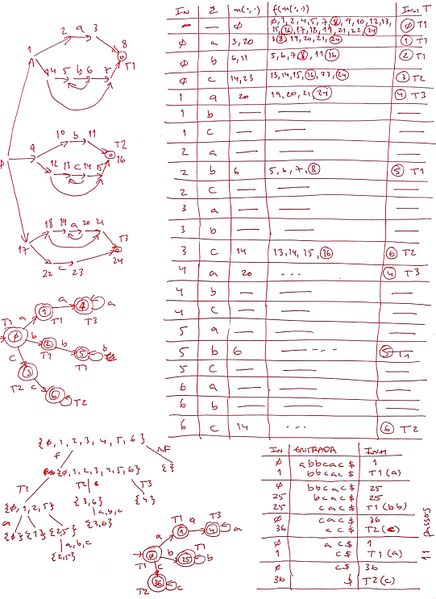 2 a 3
1
8
T1
4 5 b 6 7
10 b 11
9
T2
16
12 13 c 14 15
18 19 a 20 21
17
T3
24
22 c 23
IN Σ m(·,·) f(m(·,·)) IN+1 T
— — ø 0, 1, 2, 4, 5, 7, 8, 9, 10, 12, 13,
15, 16, 17, 18, 19, 21, 22, 24 ø T1
ø a 3, 20 3, 8, 19, 20, 21, 24 1 T1
ø b 6, 11 5, 6, 7, 8, 11, 16 2 T1
ø c 14, 23 13, 14, 15, 16, 23, 24 3 T2
1 a 20 19, 20, 21, 24 4 T3
1 b — — —
1 c — — —
2 a — — —
2 b 6 5, 6, 7, 8 5 T1
2 c — — —
3 a — — —
3 b — — —
3 c 14 13, 14, 15, 16 6 T2
4 a 20 ... 4 T3
4 b — — —
4 c — — —
5 a — — —
5 b 6 ... 5 T1
5 c — — —
6 a — — —
6 b — — —
6 c 14 ... 6 T2
T1 a 1 a 4 a
T1 T3
ø b 2 b 5 b
T1 T1
c
3
T2 c
6 c
T2
{ø, 1, 2, 3, 4, 5, 6}
F NF
{ø, 1, 2, 3, 4, 5, 6} { }
T1 T2 T3
{ø, 1, 2, 5} {3, 6} {4}
a a, b, c
{ø} {1} {2,5} {3,6}
a, b, c
{2,5}
a 1 a 4 a
T1 T3
ø b 25 b
T1 T1
c
36 c
T2
IN ENTRADA IN+1
ø abbcac$ 1
1 bbcac$ T1 (a)
ø bbcac$ 25
25 bcac$ 25
25 cac$ T1 (bb)
ø cac$ 36
36 ac$ T2 (c)
ø ac$ 1
1 c$ T1 (a)
ø c$ 36
36 $ T2 (c)
11 passos